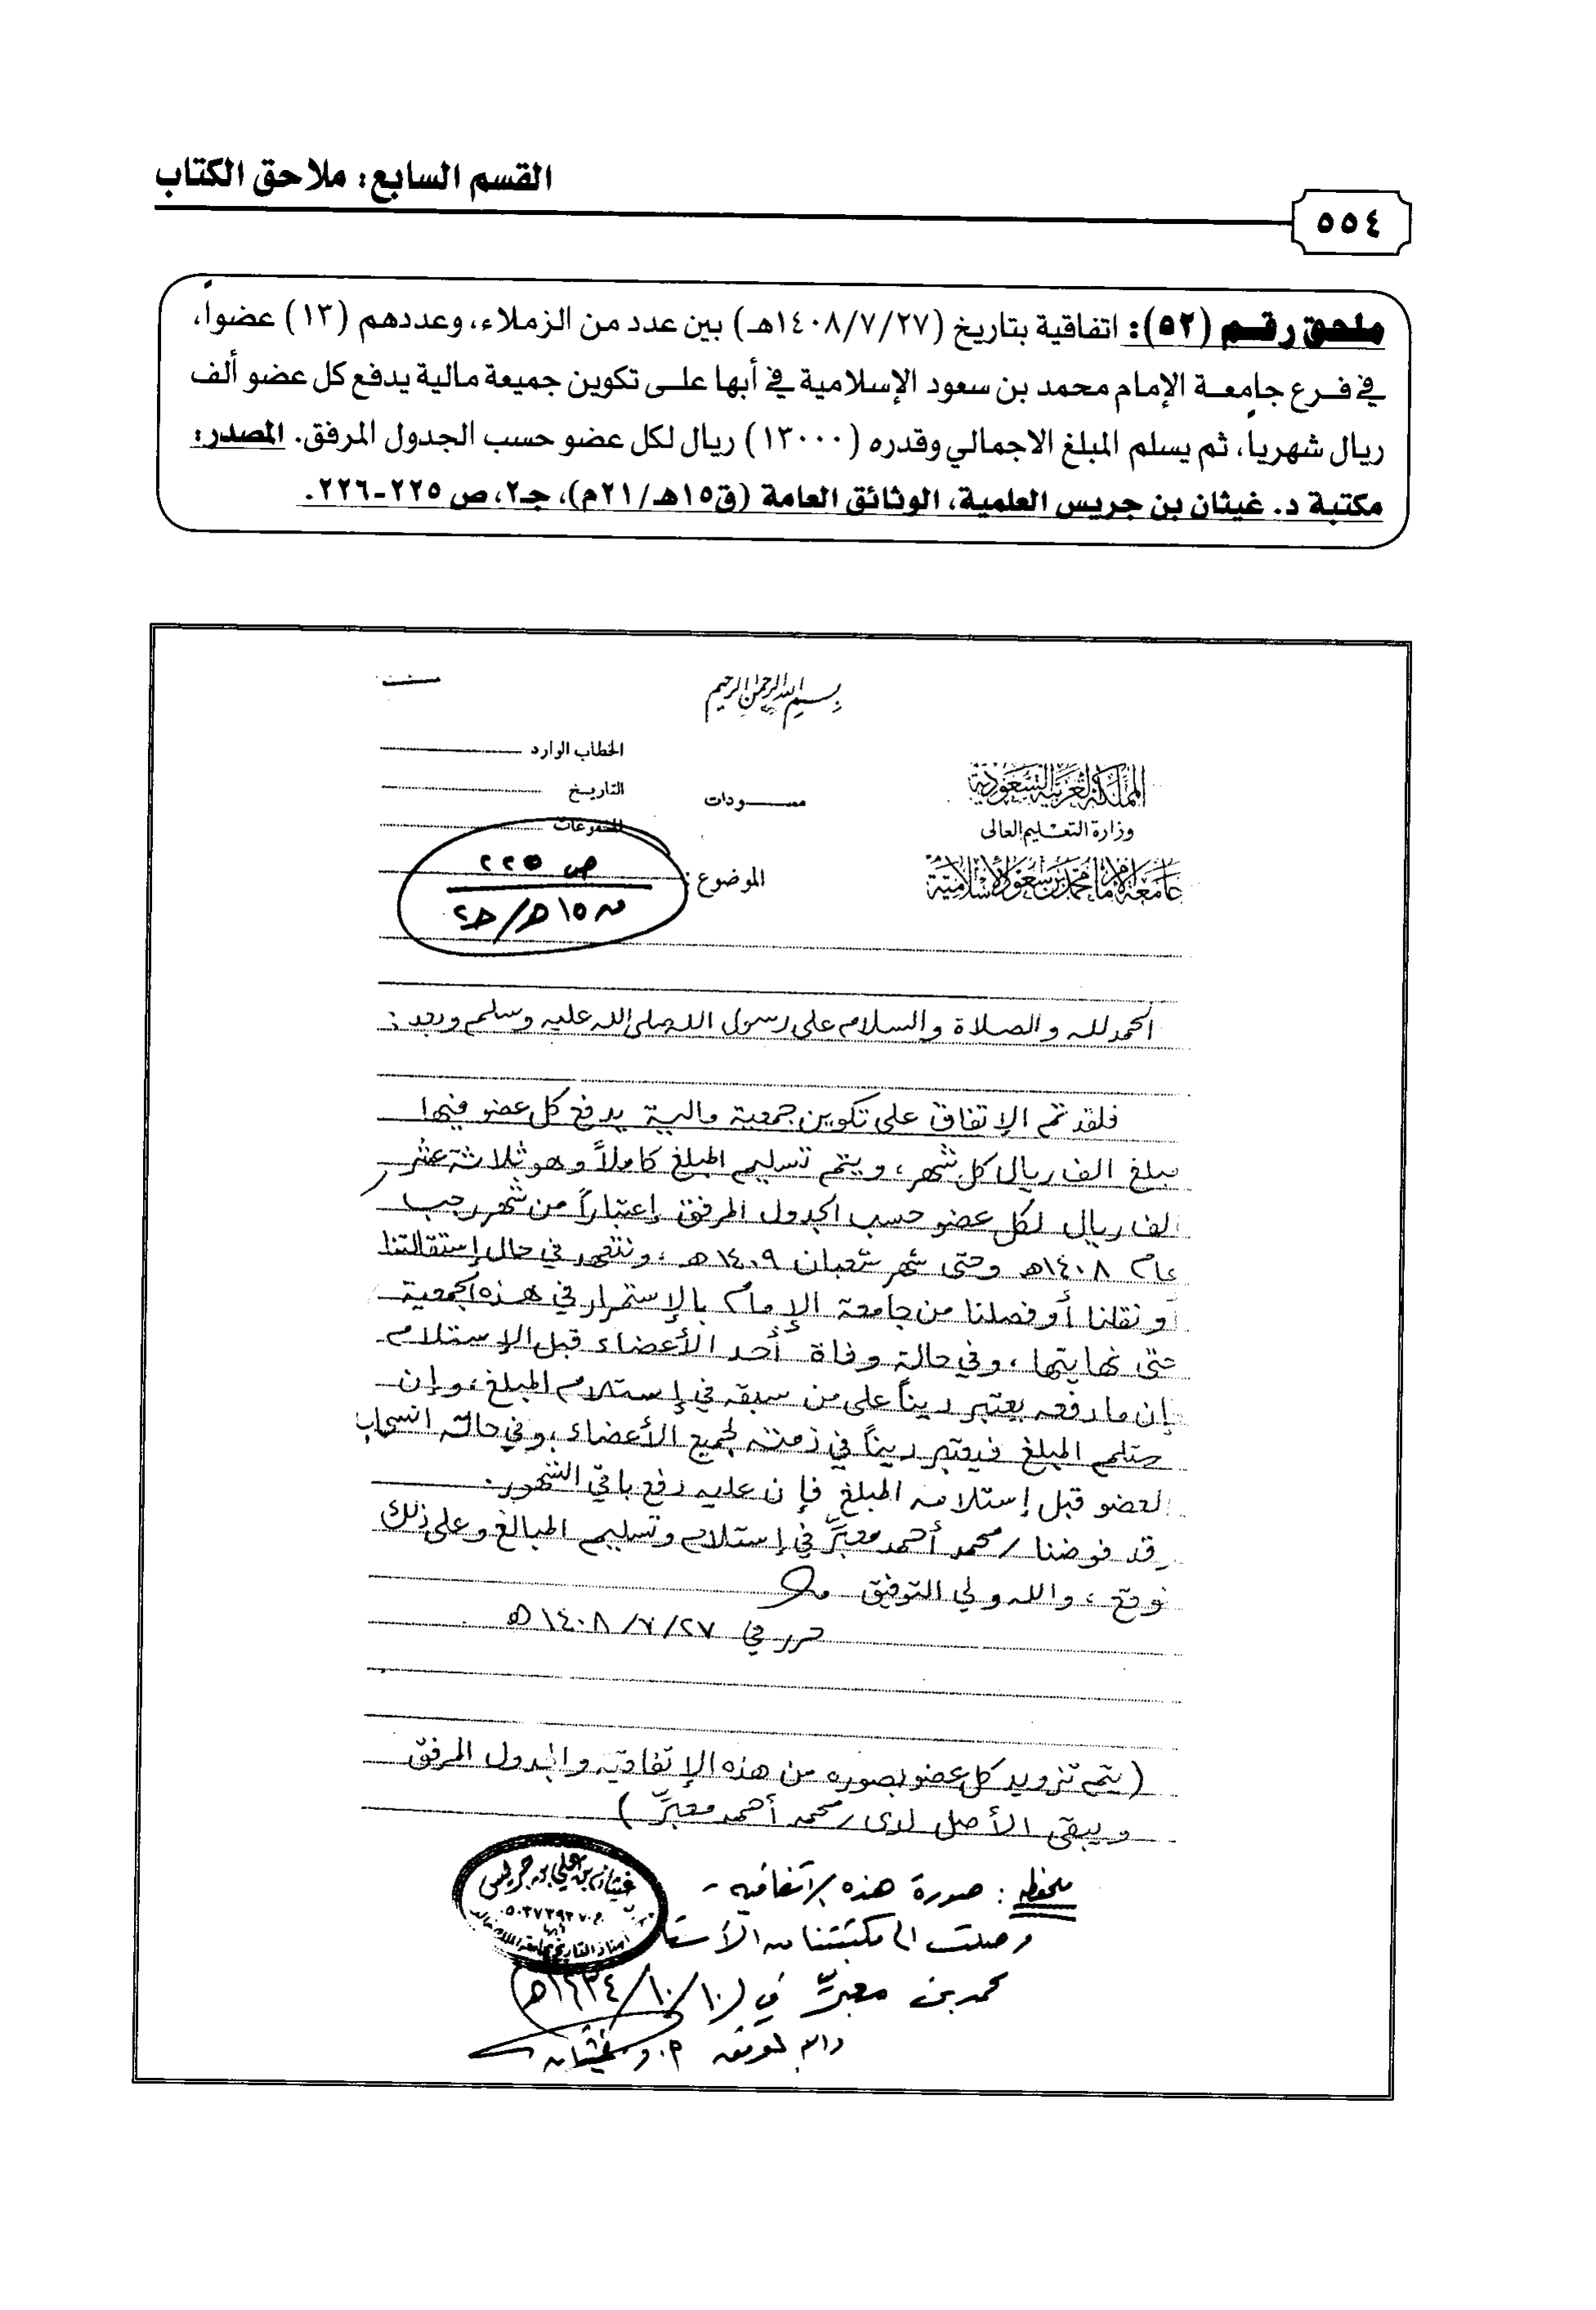 القسم السابع: ملاحق الكتاب
٥٥٤
ملحق رقم (٥٢): اتفاقية بتاريخ (١٤٠٨/٧/٢٧هـ) بين عدد من الزملاء، وعددهم (١٣) عضواً،
في فرع جامعة الإمام محمد بن سعود الإسلامية في أبها على تكوين جميعة مالية يدفع كل عضو ألف
ريال شهرياً، ثم يسلم المبلغ الاجمالي وقدره (١٣٠٠٠) ريال لكل عضو حسب الجدول المرفق. المصدر:
مكتبة د. غيثان بن جريس العلمية، الوثائق العامة (ق١٥هـ/٢١م)، جـ٢، ص ٢٢٥-٢٢٦.
بسم الله الرحمن الرحيم
الخطاب الوارد
المملكة العربية السعودية
التاريخ
مسودات
وزارة التعليم العالى
المشفوعات
جامعة الإمام محمد بن سعود الإسلامية
الموضوع:
ص ٢٢٥
ق ١٥هـ/جـ٢
الحمد لله والصلاة والسلام على رسول الله صلى الله عليه وسلم وبعد:
فلقد تم الإتفاق على تكوين جمعية مالية يدفع كل عضو فيها
مبلغ الف ريال كل شهر، ويتم تسليم المبلغ كاملاً وهو ثلاثة عشر
الف ريال لكل عضو حسب الجدول المرفق إعتباراً من شهر رجب
عام ١٤٠٨هـ وحتى شهر شعبان ١٤٠٩هـ، ونتعهد في حال إستقالتنا
أو نقلنا أو فصلنا من جامعة الإمام بالإستمرار في هذه الجمعية
حتى نهايتها، وفي حالة وفاة أحد الأعضاء قبل الإستلام
إن ما دفعه يعتبر ديناً على من سبقه في إستلام المبلغ، وإن
ستلم المبلغ فيعتبر ديناً في ذمته لجميع الأعضاء، وفي حالة انسحاب
العضو قبل إستلامه المبلغ فإن عليه دفع باقي الشهور.
قد فوضنا/ محمد أحمد معبرّ في إستلام وتسليم المبالغ وعلى ذلك
نوقع، والله ولي التوفيق
حرر في ١٤٠٨/٧/٢٧هـ
(يتم تزويد كل عضو بصوره من هذه الإتفاقيه والجدول المرفق
ويبقى الأصل لدى/ محمد أحمد معبرّ)
ملحظه: صورة هذه الاتفاقيه -
وصلت الى مكتبتنا من الأستاذ
محمد بن معبرّ في (١٤٣٤/١٠/١٠هـ)
والله الموفق د. غيثان
غيثان بن علي بن جريس